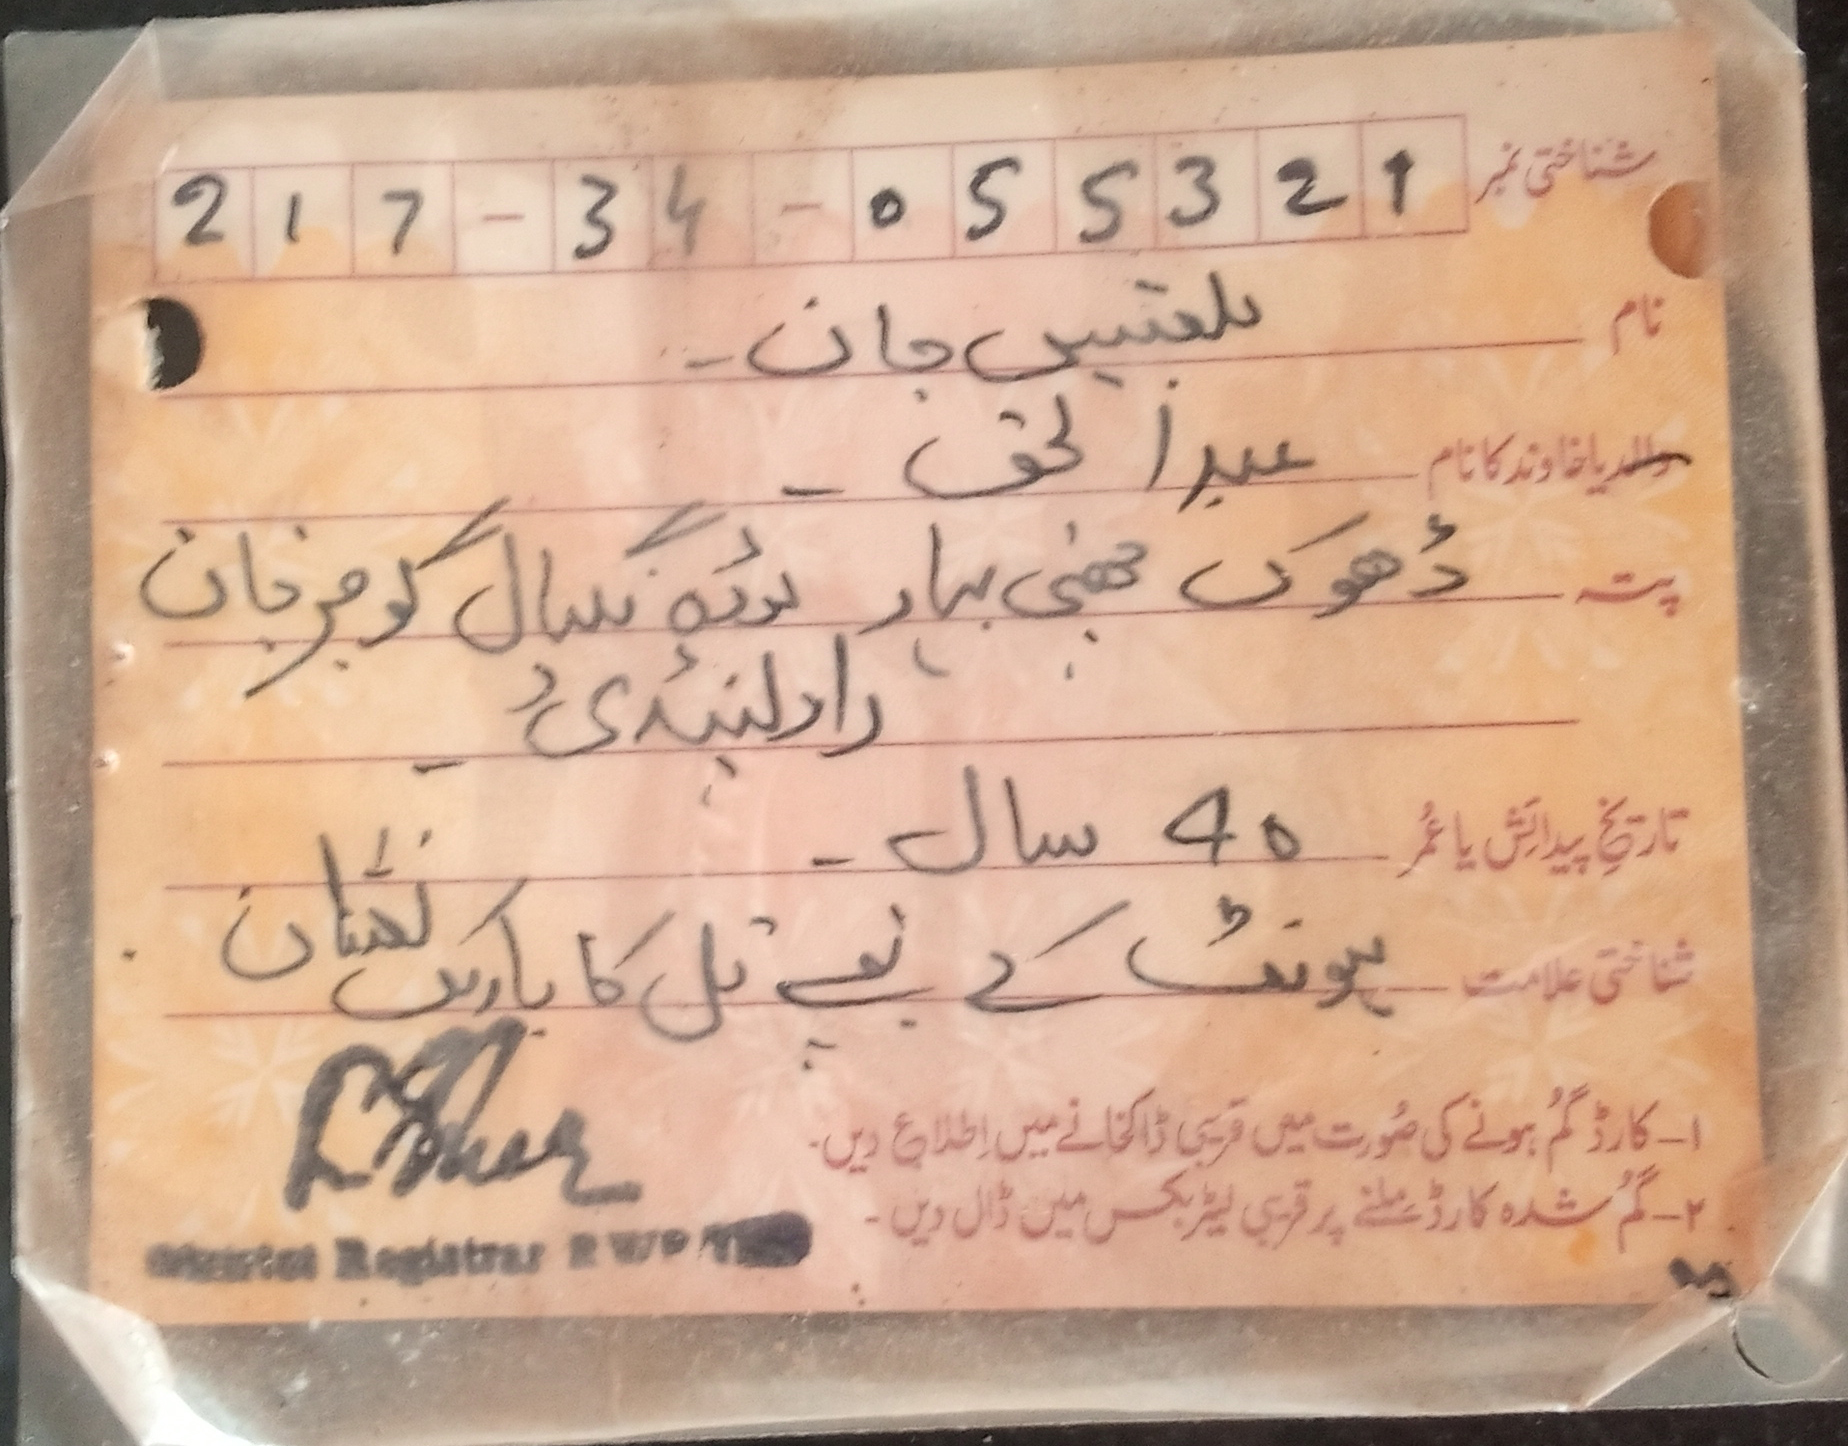 شناختی نمبر 217-34-055321
نام بلقیس جان -
والد یا خاوند کا نام عبدالحق -
پتہ ڈھوک بہار گوجرخان
راولپنڈی -
تاریخ پیدائش یا عمر 40 سال -
شناختی علامت ہونٹ کے نیچے تل کا باریک نشان
۱- کارڈ گم ہونے کی صورت میں قریبی ڈاکخانے میں اطلاع دیں۔
۲- گم شدہ کارڈ ملنے پر قریبی لیٹربکس میں ڈال دیں۔
Registrar RWP